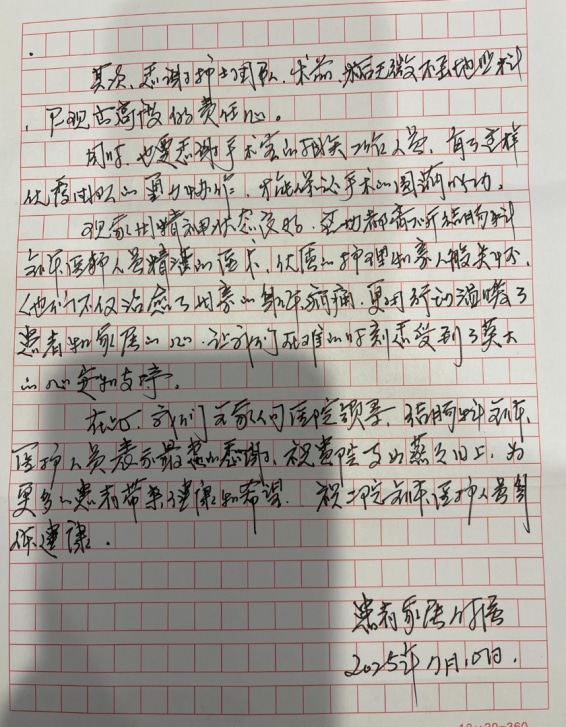 其次,感谢护士团队,术前、术后无微不至地照料
,展现出高度的责任心。
同时,也要感谢手术室的相关工作人员,有了这样
优秀团队的通力协作,才能保证手术的圆满成功。
现家用精神状态良好,这些都离不开结肠科
全体医护人员精湛的医术,优质的护理和亲人般关怀,
他们不仅治愈了的身体病痛,更用行动温暖了
患者和家属的心,让我们在艰难的时刻感受到了莫大
的心安和支撑。
在此,我们全家人向医院领导,结肠科全体
医护人员表示最诚的感谢,祝贵院蒸蒸日上,为
更多的患者带来健康和希望。祝全院全体医护人员身
体健康。
患者家属
2025年7月10日.
18×20=360